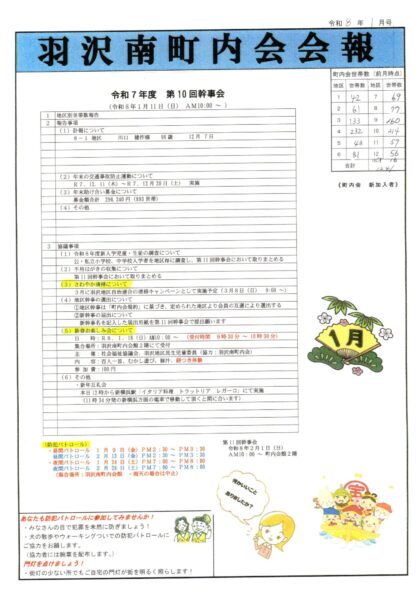 令和 8 年 1 月号
羽沢南町内会会報
令和7年度 第10回幹事会
(令和8年1月11日(日) AM10:00~)
町内会世帯数(前月時点)
地区 世帯数 地区 世帯数
1 42 7 69
2 61 8
3 133 9
4 232 10
5 57
6 81 12 56
合計
《町内会 新加入者》
1 地区別世帯数報告
2 報告事項
(1)訃報について
12月 7日
(2)年末の交通事故防止運動について
R7.12.11(木)~R7.12月20日(土) 実施
(3)年末助け合い募金について
(4)その他
3 協議事項
(1)令和8年度新入学児童・生徒の調査について
公・私立小学校、中学校入学者を地区毎に調査し、第11回幹事会において取りまとめる
(2)不用はがきの収集について
第11回幹事会において取りまとめる
(3)さわやか清掃について
3月に羽沢地区自治会連合の清掃キャンペーンとして実施予定(3月8日(日) 9:00~)
(4)地区幹事の選出について
①地区幹事は「町内会規約」に基づき、定められた地区より会員の互選により選出する
②新幹事の届出について
新幹事名を記入した届出用紙を第11回幹事会で提出願います
(5)新春お楽しみ会について
集合場所:羽沢南町内会館2階にて受付
主 催:社会福祉協議会、羽沢地区民生児童委員(協力:羽沢南町内会)
内 容:百人一首、むかし遊び、豚汁、餅つき体験
参加費:100円
(6)その他
・新年互礼会
本日12時から新横浜駅「イタリア料理 トラットリア レガーロ」にて実施
(11時34分発の新横浜方面の電車で移動して頂くと間に合います)
(防犯パトロール)
・昼間パトロール 1月 9日(金)PM2:30~PM3:30
・昼間パトロール 2月13日(金)PM2:30~PM3:30
・夜間パトロール 1月24日(土)PM7:00~PM8:00
(集合場所:羽沢南町内会館 ・雨天の場合は中止)
第11回幹事会
令和8年2月1日(日)
AM10:00~ 町内会館2階
1月
何かいいこと
ありましたか?
宝
あなたも防犯パトロールに参加してみませんか!
・みなさんの目で犯罪を未然に防ぎましょう!
・犬の散歩やウォーキングついでの防犯パトロールに
ご協力をお願いします。
(協力者には腕章を配布します。)
門灯を点けましょう!
・街灯の少ない所でもご自宅の門灯が街を明るく照らします!